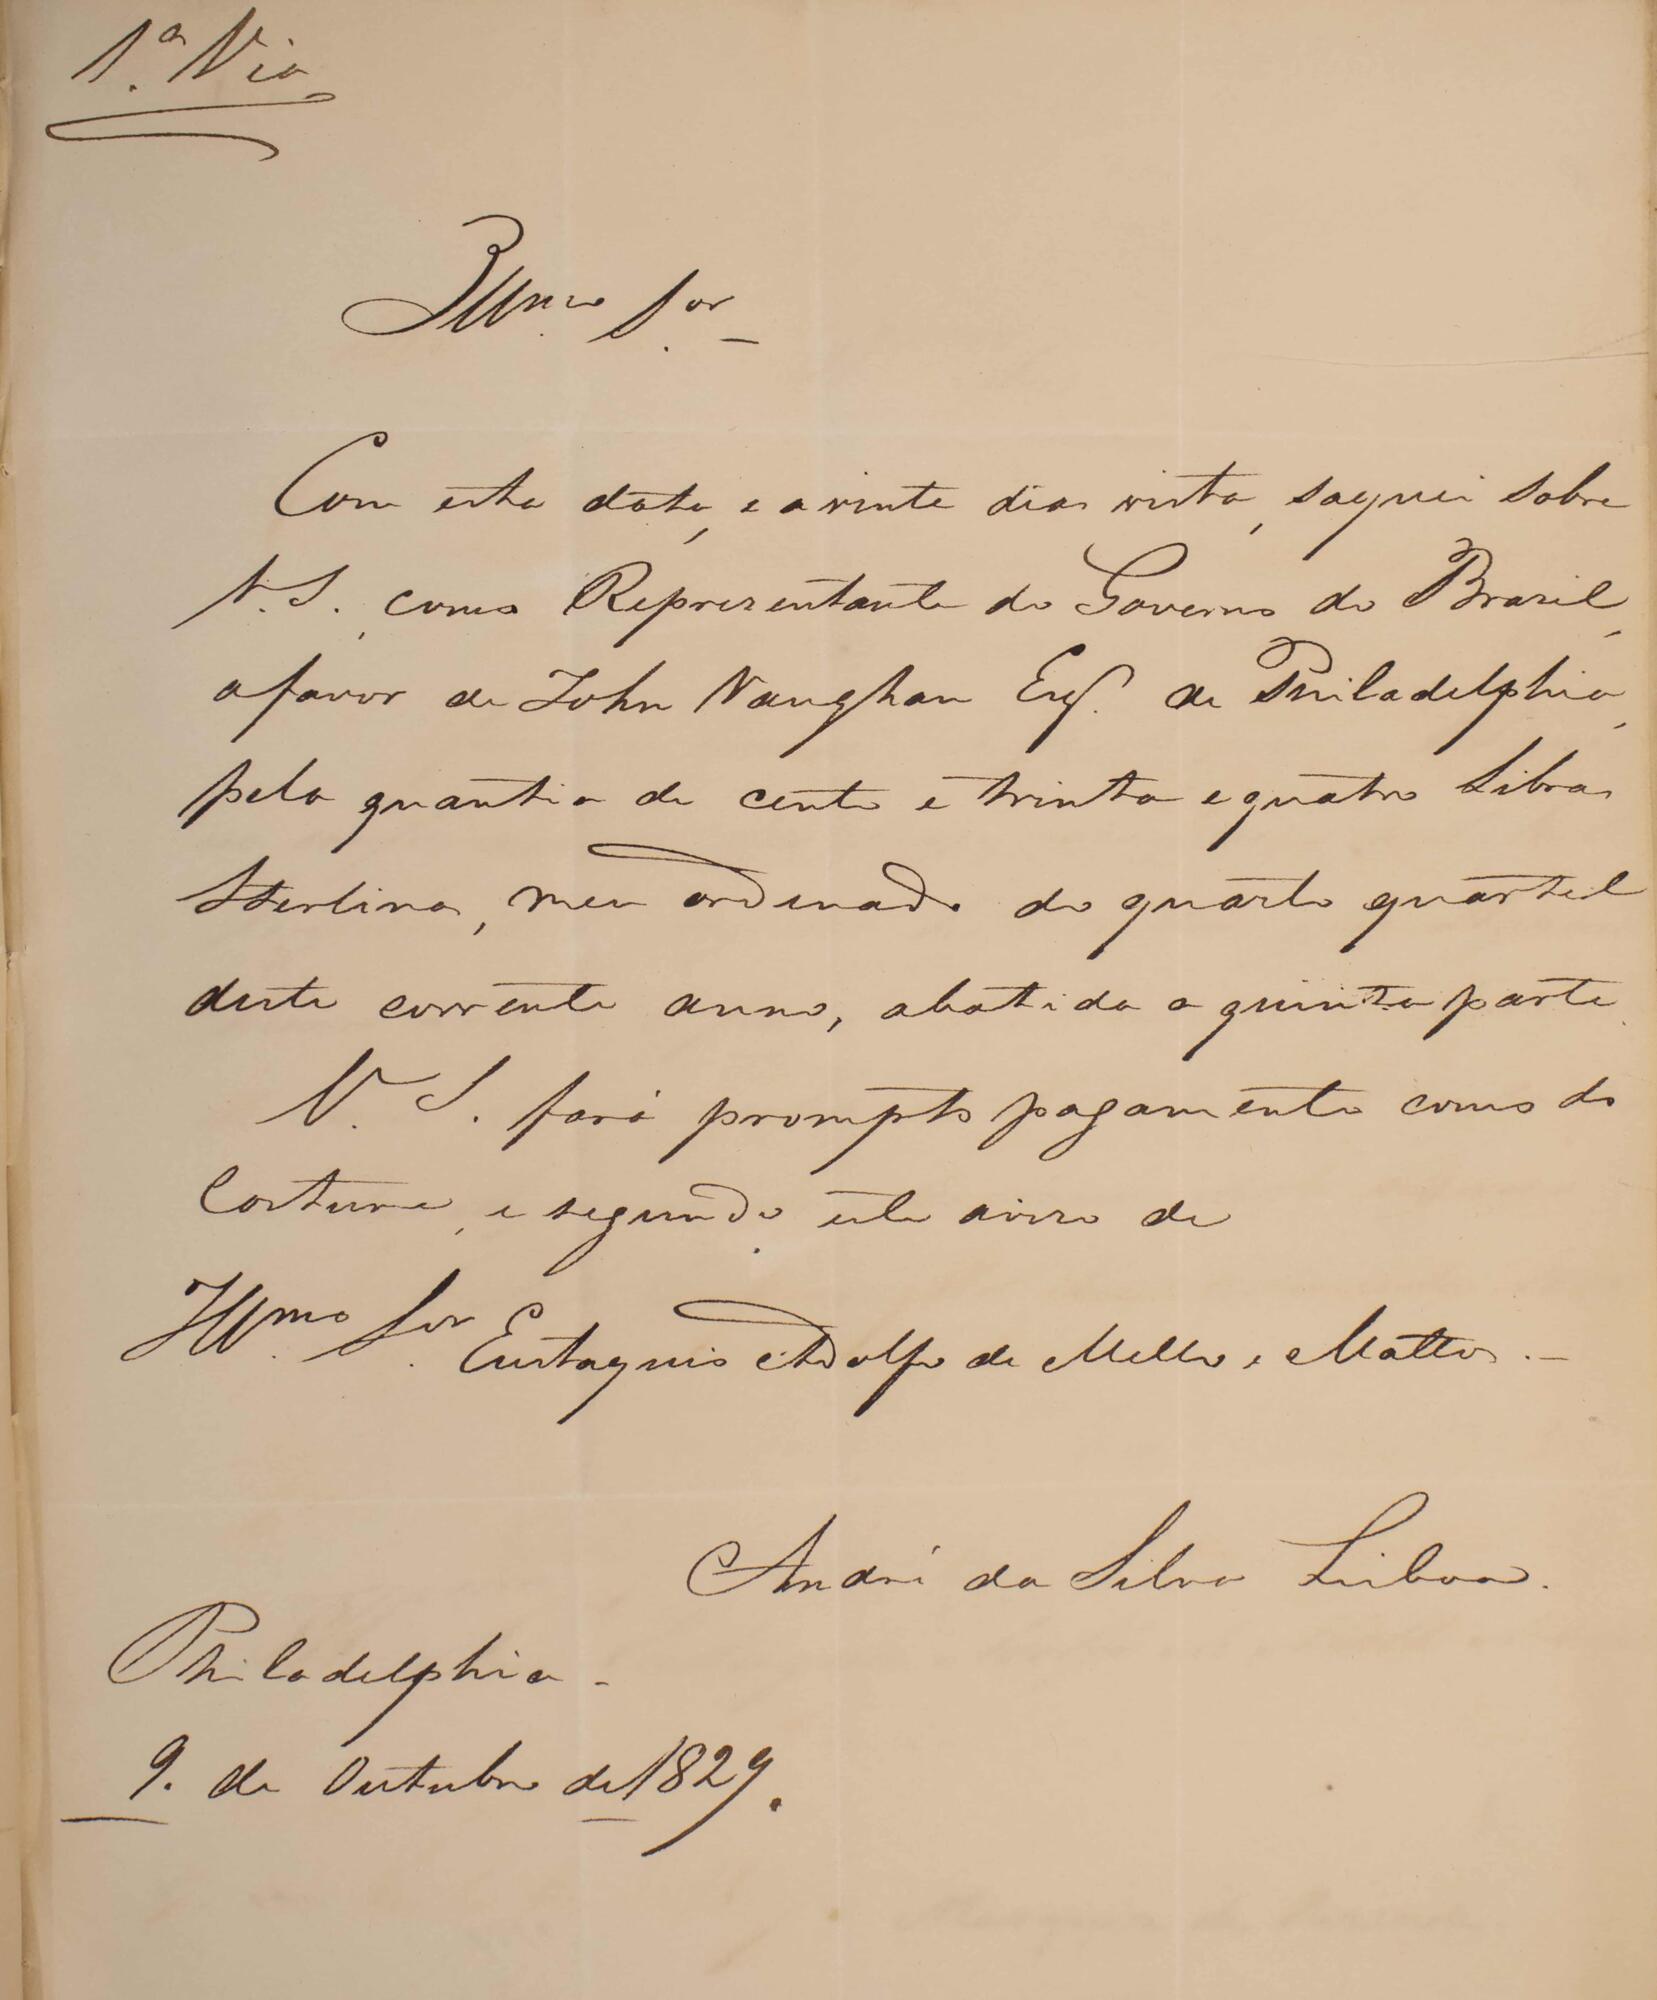 1.ª Via
Illmo. Sor. —
Com esta data, e a vinte dias vista, saquei sobre
V. S., como Representante do Governo do Brazil,
a favor de John Vaughan Esqr. de Philadelphia,
pela quantia de cento e trinta e quatro Libras
Sterlinas, meu ordenado do quarto quartel
deste corrente anno, abatida a quinta parte.
V. S. fará prompto pagamento como do
Costume, e segundo este aviso de
Illmo. Sor. Eustaquio Adolfo de Mello e Mattos. —
André da Silva Lisboa.
Philadelphia -
9. de Outubro de 1829.